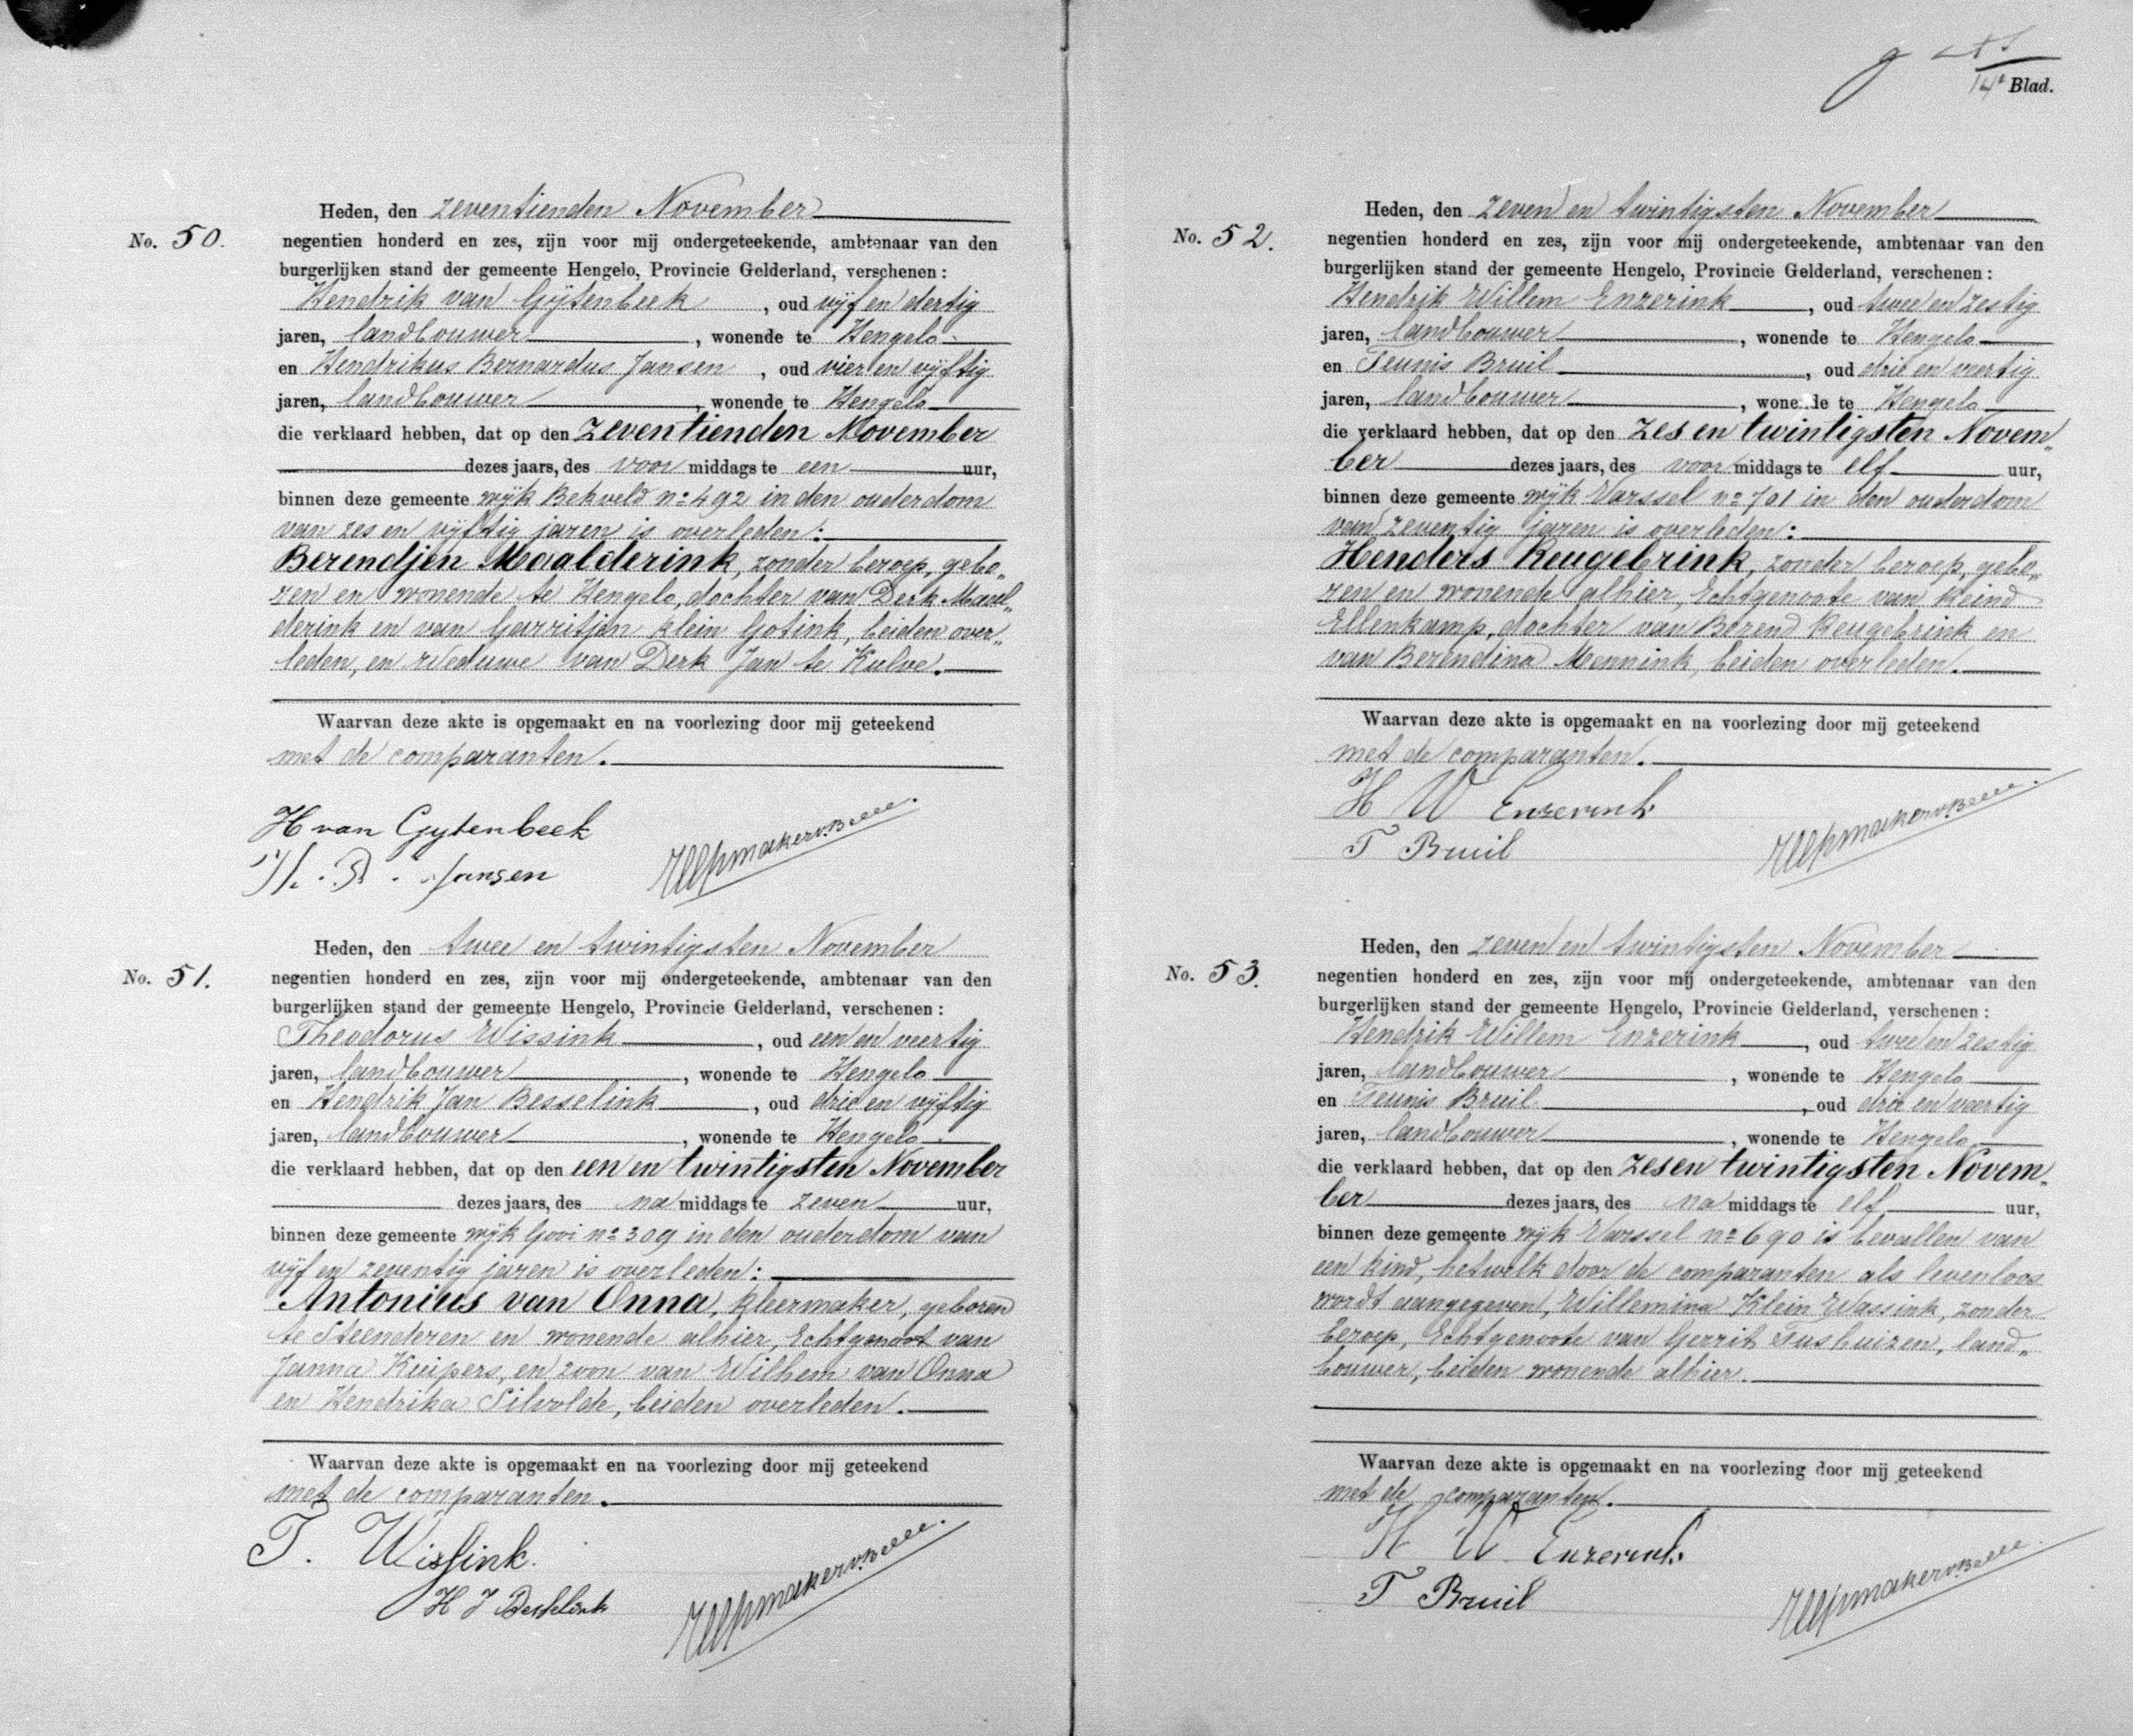 14e Blad.
Heden, den zeventienden November
No. 50.
negentien honderd en zes, zijn voor mij ondergeteekende, ambtenaar van den
burgerlijken stand der gemeente Hengelo, Provincie Gelderland, verschenen:
Hendrik van Gijtenbeek, oud vijf en dertig
jaren, landbouwer, wonende te Hengelo
en Hendrikus Bernardus Jansen, oud vier en vijftig
jaren, landbouwer, wonende te Hengelo
die verklaard hebben, dat op den zeventienden November
dezes jaars, des voormiddags te een uur,
binnen deze gemeente wijk Bekveld no 492 in den ouderdom
van zes en vijftig jaren is overleden:
Berendjen Maalderink, zonder beroep, gebo„
ren en wonende te Hengelo, dochter van Derk Maal„
derink en van Garritjen klein Gotink, beiden over„
leden, en Weduwe van Derk Jan te Kulve.
Waarvan deze akte is opgemaakt en na voorlezing door mij geteekend
met de comparanten.
H van Gytenbeek
H. B. Jansen
Heden, den twee en twintigsten November
No. 51.
negentien honderd en zes, zijn voor mij ondergeteekende, ambtenaar van den
burgerlijken stand der gemeente Hengelo, Provincie Gelderland, verschenen:
Theodorus Wissink, oud een en veertig
jaren, landbouwer, wonende te Hengelo
en Hendrik Jan Besselink, oud drie en vijftig
jaren, landbouwer, wonende te Hengelo
die verklaard hebben, dat op den een en twintigsten November
dezes jaars, des namiddags te zeven uur,
binnen deze gemeente wijk Gooi no 309 in den ouderdom van
vijf en zeventig jaren is overleden:
Antonius van Onna, kleermaker, geboren
te Steenderen en wonende alhier, Echtgenoot van
Janna Kuipers, en zoon van Wilhem van Onna
en Hendrika Silvolde, beiden overleden.
Waarvan deze akte is opgemaakt en na voorlezing door mij geteekend
met de comparanten.
T. Wissink.
H J Besselink
Heden, den zeven en twintigsten November
No. 52.
negentien honderd en zes, zijn voor mij ondergeteekende, ambtenaar van den
burgerlijken stand der gemeente Hengelo, Provincie Gelderland, verschenen:
Hendrik Willem Enzerink, oud twee en zestig
jaren, landbouwer, wonende te Hengelo
en Teunis Bruil, oud drie en veertig
jaren, landbouwer, wonende te Hengelo
die verklaard hebben, dat op den zes en twintigsten Novem„
ber dezes jaars, des voormiddags te elf uur,
binnen deze gemeente wijk Varssel no 701 in den ouderdom
van zeventig jaren is overleden:
Henders Keugebrink, zonder beroep, gebo„
ren en wonende alhier, Echtgenoote van Reind
Ellenkamp, dochter van Berend Keugebrink en
van Berendina Mennink, beiden overleden.
Waarvan deze akte is opgemaakt en na voorlezing door mij geteekend
met de comparanten.
H W Enzerink
T Bruil
Heden, den zeven en twintigsten November
No. 53.
negentien honderd en zes, zijn voor mij ondergeteekende, ambtenaar van den
burgerlijken stand der gemeente Hengelo, Provincie Gelderland, verschenen:
Hendrik Willem Enzerink, oud twee en zestig
jaren, landbouwer, wonende te Hengelo
en Teunis Bruil, oud drie en veertig
jaren, landbouwer, wonende te Hengelo
die verklaard hebben, dat op den zes en twintigsten Novem„
ber dezes jaars, des namiddags te elf uur,
binnen deze gemeente wijk Varssel no 690 is bevallen van
een kind, hetwelk door de comparanten als levenloos
wordt aangegeven, Willemina Klein Wassink, zonder
beroep, Echtgenoote van Gerrit Fushuizen, land„
bouwer, beiden wonende alhier.
Waarvan deze akte is opgemaakt en na voorlezing door mij geteekend
met de comparanten.
H W. Enzerink
T Bruil